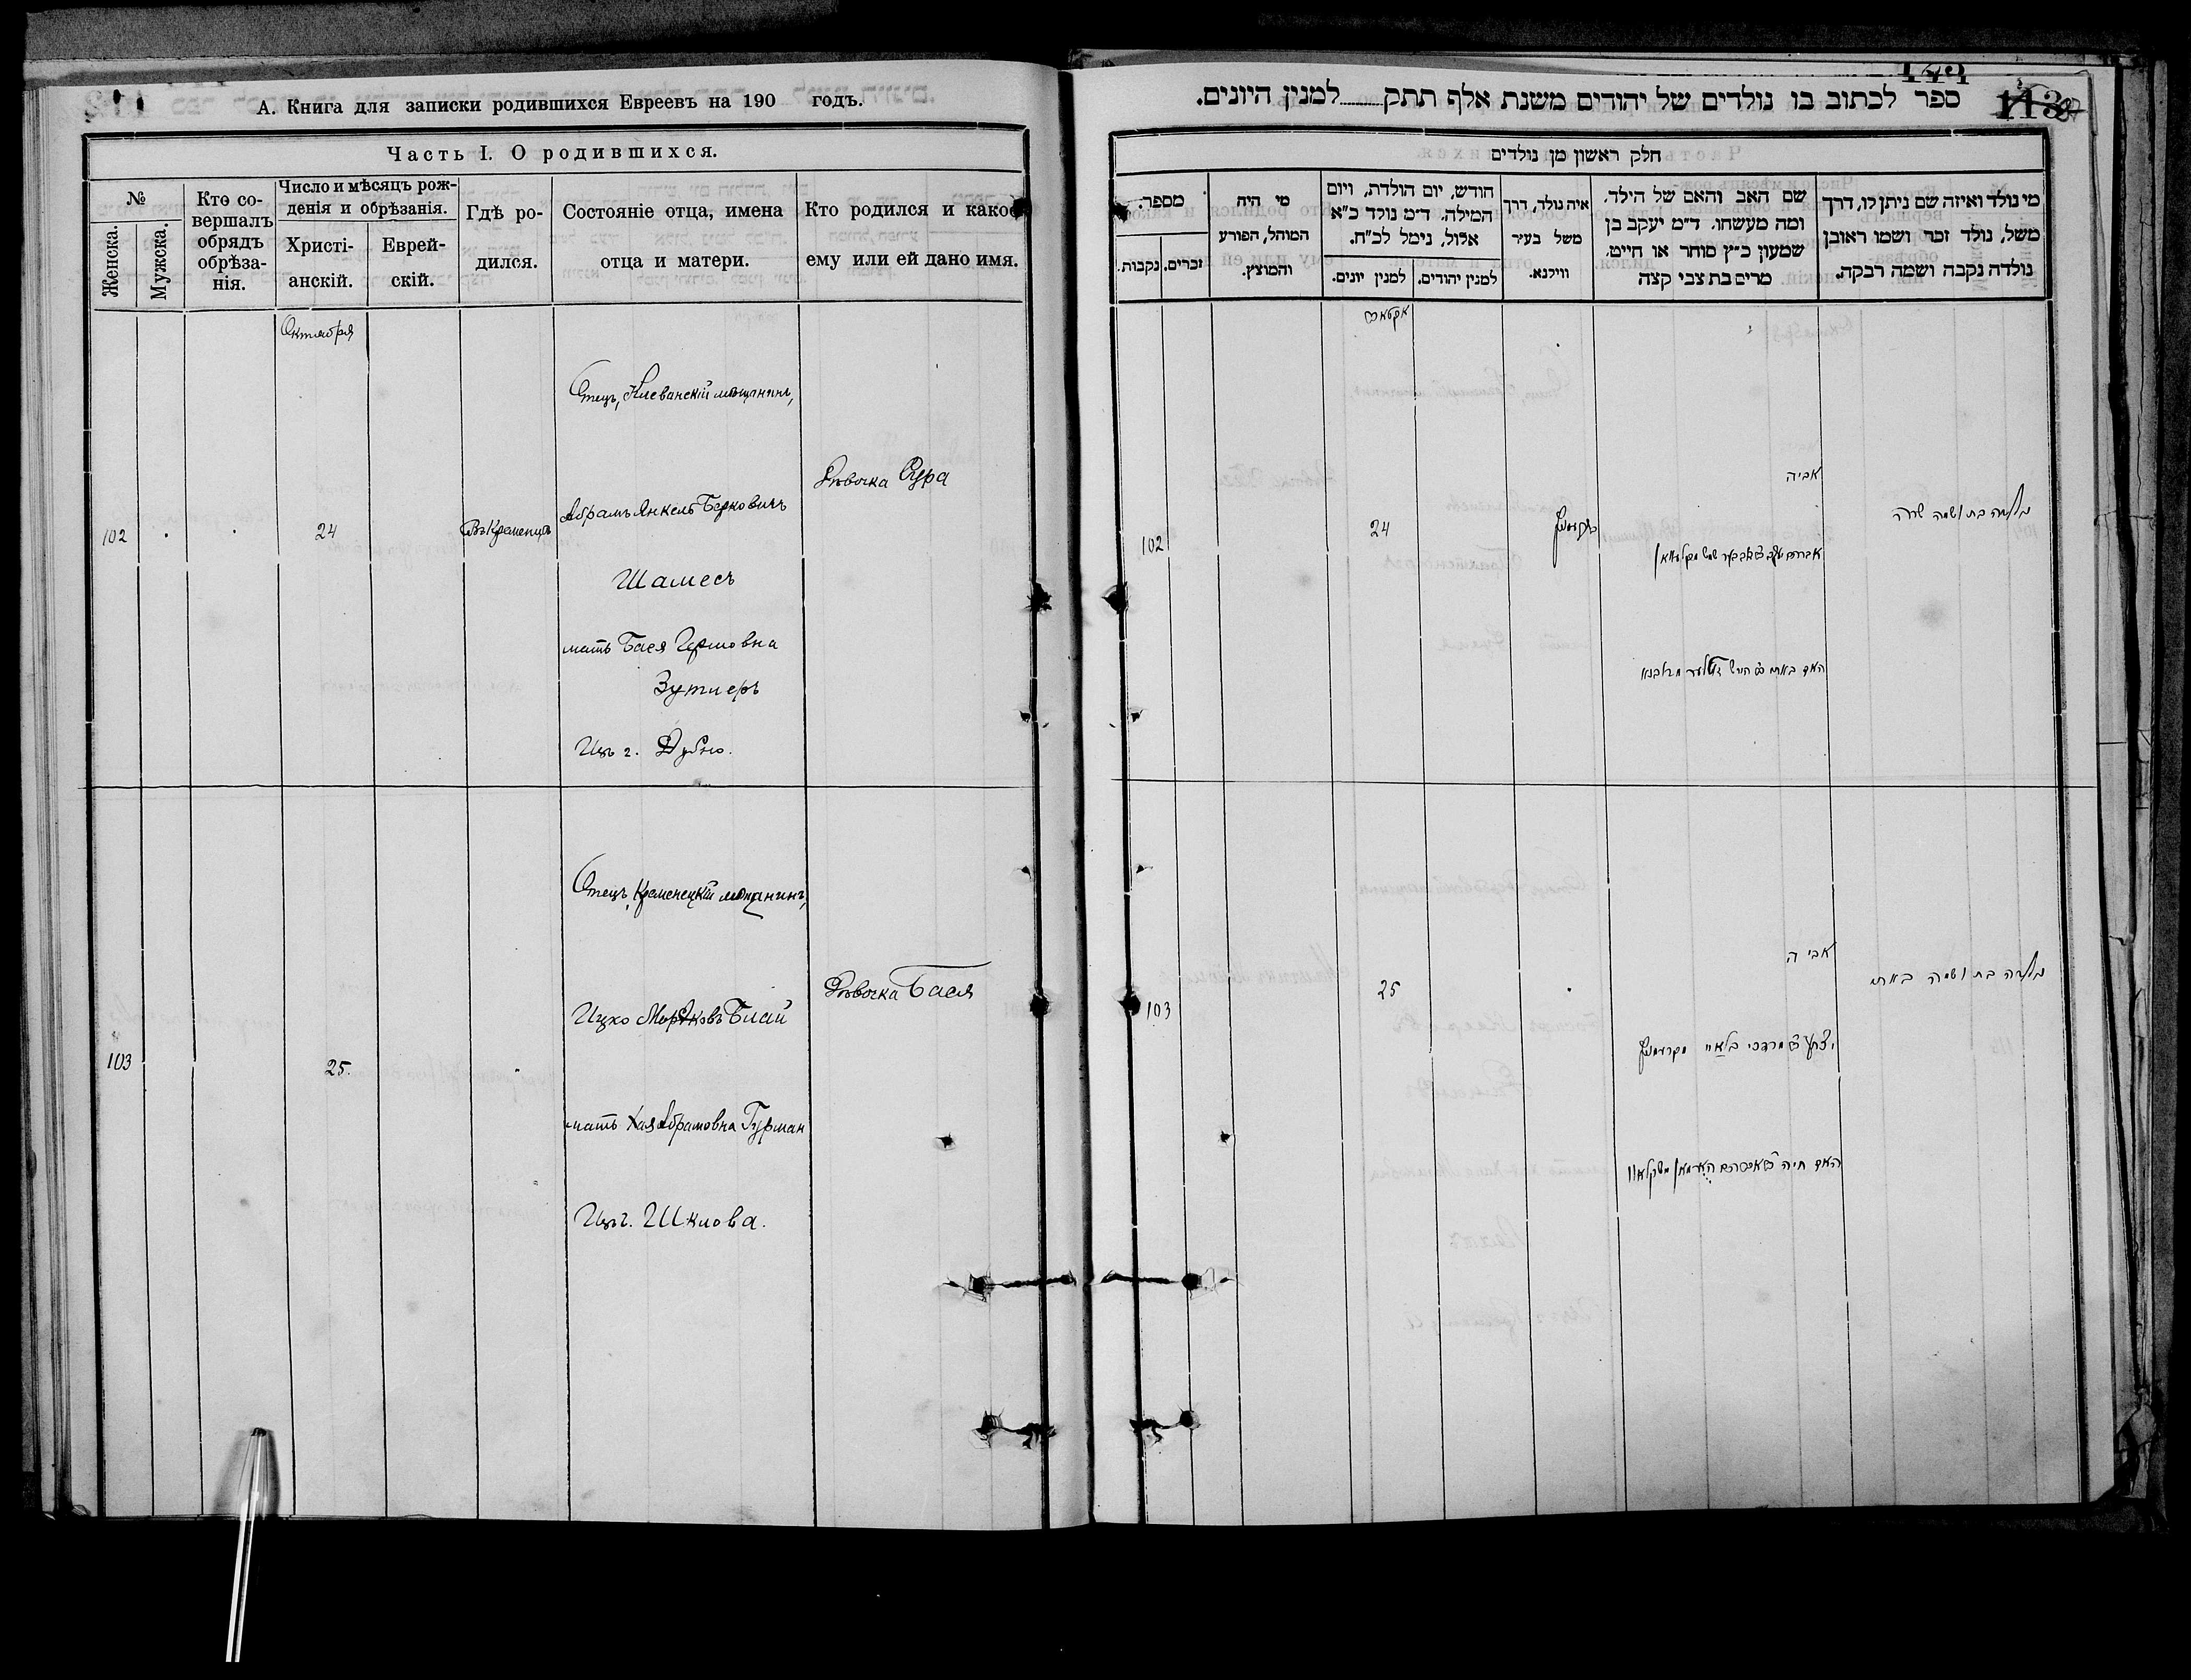 А. Книга для записки родившихся Евреевъ на 190 годъ.
Часть I. О родившихся.
№
Женска.
Мужска.
Кто со-
вершалъ
обрядъ
обрѣза-
нія.
Число и мѣсяцъ рож-
денія и обрѣзанія.
Христі-
анскій.
Еврей-
скій.
Гдѣ ро-
дился.
Состояніе отца, имена
отца и матери.
Кто родился и какое
ему или ей дано имя.
Октября
102
24
Въ Кременцѣ
Отецъ, Клеванскій мѣщанинъ,
Абрамъ Янкель Берковичъ
Шамесъ
мать Бася Гершовна
Зутлеръ
Изъ г. Дубно.
Дѣвочка Сура
103
25.
Отецъ, Кременецкій мѣщанинъ,
Ицко Мордковъ Блай
мать Хая Абрамовна Гурман
Изъ г. Шклова.
Дѣвочка Бася
113
ספר לכתוב בו נולדים של יהודים משנת אלף תתק ........ למנין היונים.
חלק ראשון מן נולדים
מי נולד ואיזה שם ניתן לו, דרך
משל, נולד זכר ושמו ראובן
נולדה נקבה ושמה רבקה.
שם האב והאם של הילד,
ומה מעשהו. ד״מ יעקב בן
שמעון כ״ץ סוחר או חייט,
מרים בת צבי קצה
איה נולד, דרך
משל בעיר
ווילנא.
חודש, יום הולדת, ויום
המילה. ד״מ נולד כ״א
אלול, נימל לכ״ח.
למנין יהודים.
למנין יונים.
מי היה
המוהל, הפורע
והמוצץ.
מספר.
זכרים.
נקבות.
נולדה בת ושמה שרה
אביה
קרעמניץ
24
102
נולדה בת ושמה באסי
אביה
יצחק ב״ר מרדכי בלאיי מקרעמניץ
25
103